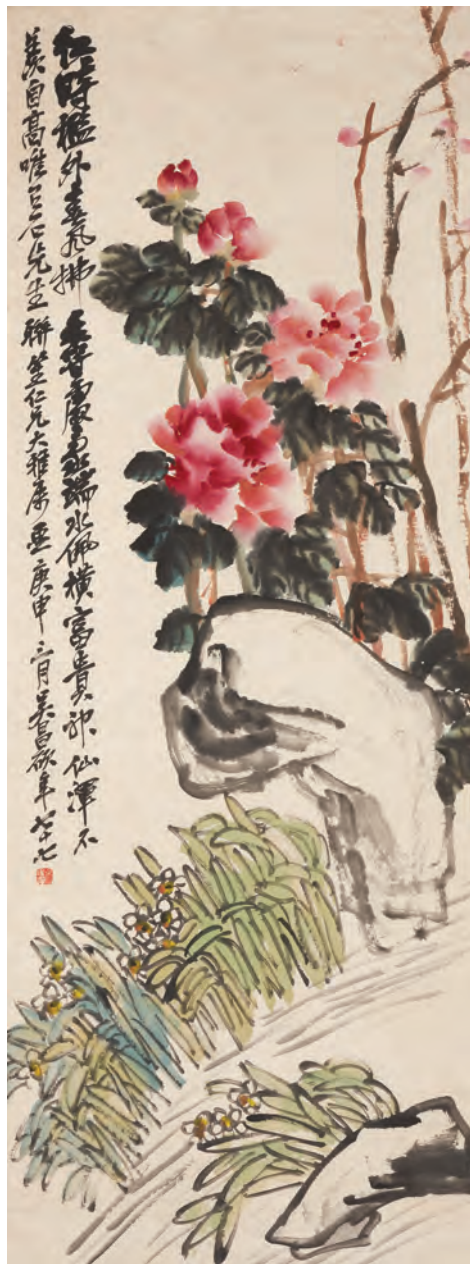 紅時檻外春風拂香處豪端水佩橫富貴神仙渾不
羨自高唯有石先生聯笙仁兄大雅屬 庚申三月吳昌碩年七十七